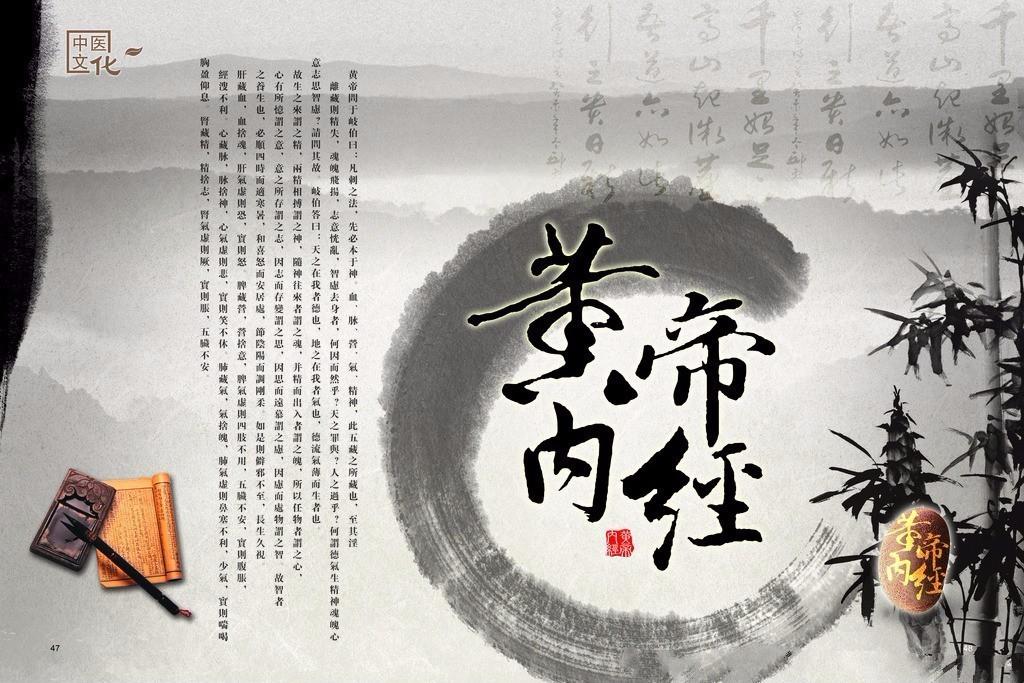 中医
文化
黄帝問于岐伯曰：凡刺之法，先必本于神。血、脉、營、氣、精神，此五藏之所藏也，至其淫
離藏則精失，魂魄飛揚，志意恍亂，智慮去身者，何因而然乎？天之罪與？人之過乎？何謂德氣生精神魂魄心
意志思智慮？請問其故。岐伯答曰：天之在我者德也，地之在我者氣也，德流氣薄而生者也
故生之來謂之精，兩精相搏謂之神，隨神往來者謂之魂，并精而出入者謂之魄，所以任物者謂之心，
心有所憶謂之意，意之所存謂之志，因志而存變謂之思，因思而遠慕謂之慮，因慮而處物謂之智 故智者
之養生也，必順四時而適寒暑，和喜怒而安居處，節陰陽而調剛柔 如是則僻邪不至，長生久視
肝藏血，血捨魂，肝氣虛則恐，實則怒 脾藏營，營捨意，脾氣虛則四肢不用，五臟不安，實則腹脹，
經溲不利。心藏脉，脉捨神，心氣虛則悲，實則笑不休 肺藏氣，氣捨魄，肺氣虛則鼻塞不利，少氣，實則喘喝
胸盈仰息 腎藏精，精捨志，腎氣虛則厥，實則脹，五臟不安
黄帝
内經
黄帝
内經
黄帝
内經
47
48